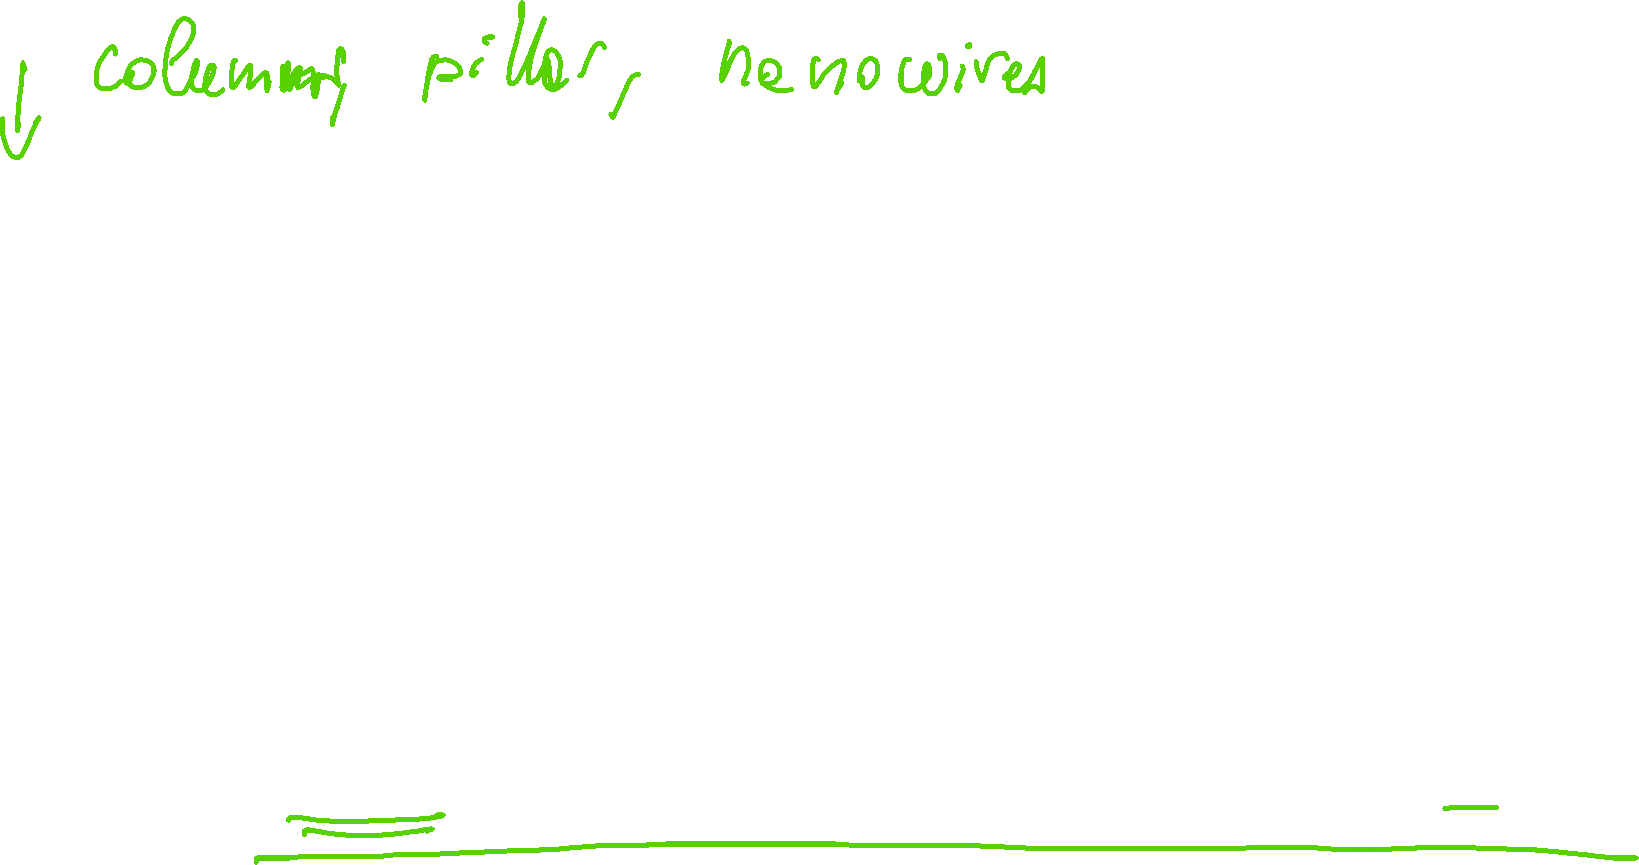 ↓ columns, pillar, nanowires